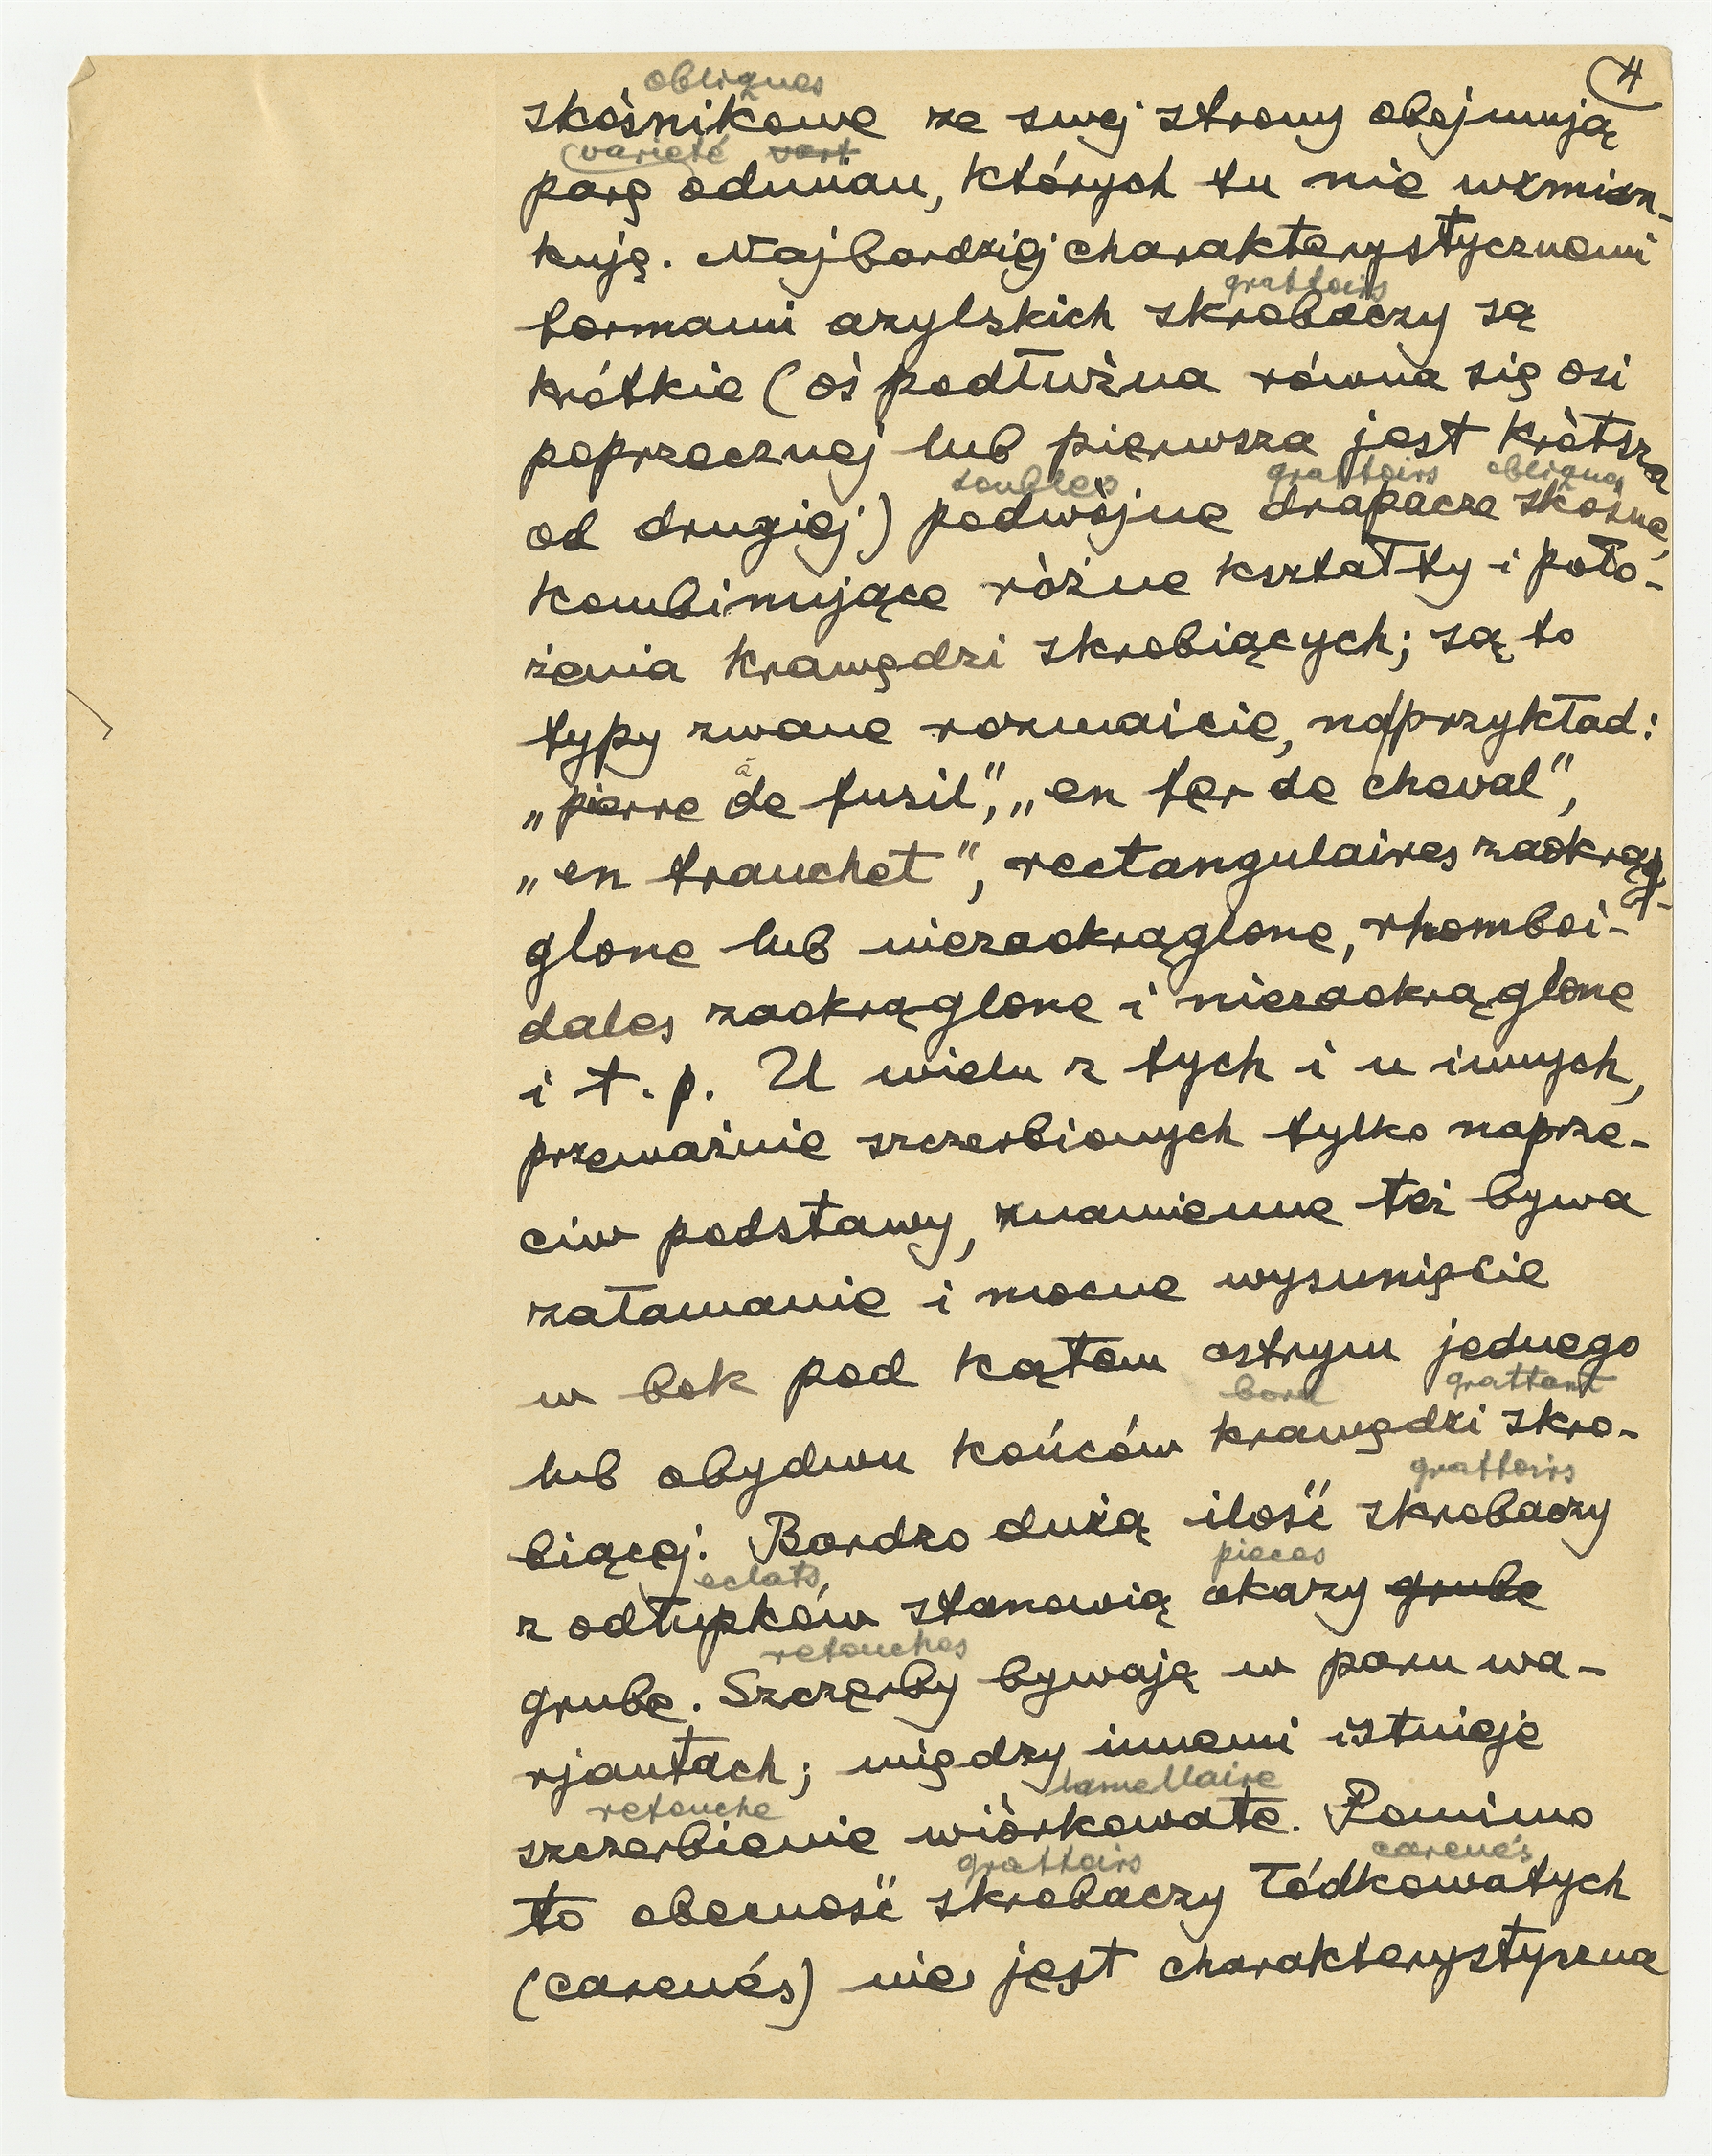 4
obliques
skośnikowe ze swej strony obejmują
varieté vart
parę odmian, których tu nie wzmian-
kuję. Najbardziej charakterystycznemi
grattoirs
formami azylskich skrobaczy są
krótkie (oś podłużna równa się osi
poprzecznej lub pierwsza jest krótsza
doubles grattoirs obliques
od drugiej) podwójne drapacze skośne,
kombinujące różne kształty i poło-
żenia krawędzi skrobiących; są to
typy zwane rozmaicie, naprzykład:
à
„pierre de fusil”, „en fer de cheval”,
„en tranchet”, rectangulaires zaokrą-
glone lub niezaokrąglone, rhomboi-
dales zaokrąglone i niezaokrąglone
i t. p. U wielu z tych i u innych,
przeważnie szczerbionych tylko naprze-
ciw podstawy, znamienne też bywa
załamanie i mocne wysunięcie
w bok pod kątem ostrym jednego
bord grattant
lub obydwu końców krawędzi skro-
grattoirs
biącej. Bardzo dużą ilość skrobaczy
eclats pieces
z odłupków stanowią okazy grube
retouches
grube. Szczerby bywają w paru wa-
rjantach; między innemi istnieje
retouche lamellaire
szczerbienie wiórkowate. Pomimo
grattoirs carenés
to obecność skrobaczy łódkowatych
(carenés) nie jest charakterystyczna